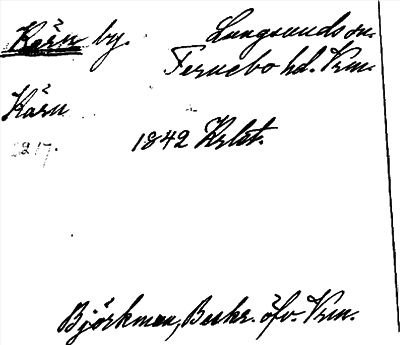 Kärn by. Lungsunds sn.
Fernebo hd. Vrm.
Kärn
1842 Krlst.
Björkman, Beskr. öfv. Vrm.